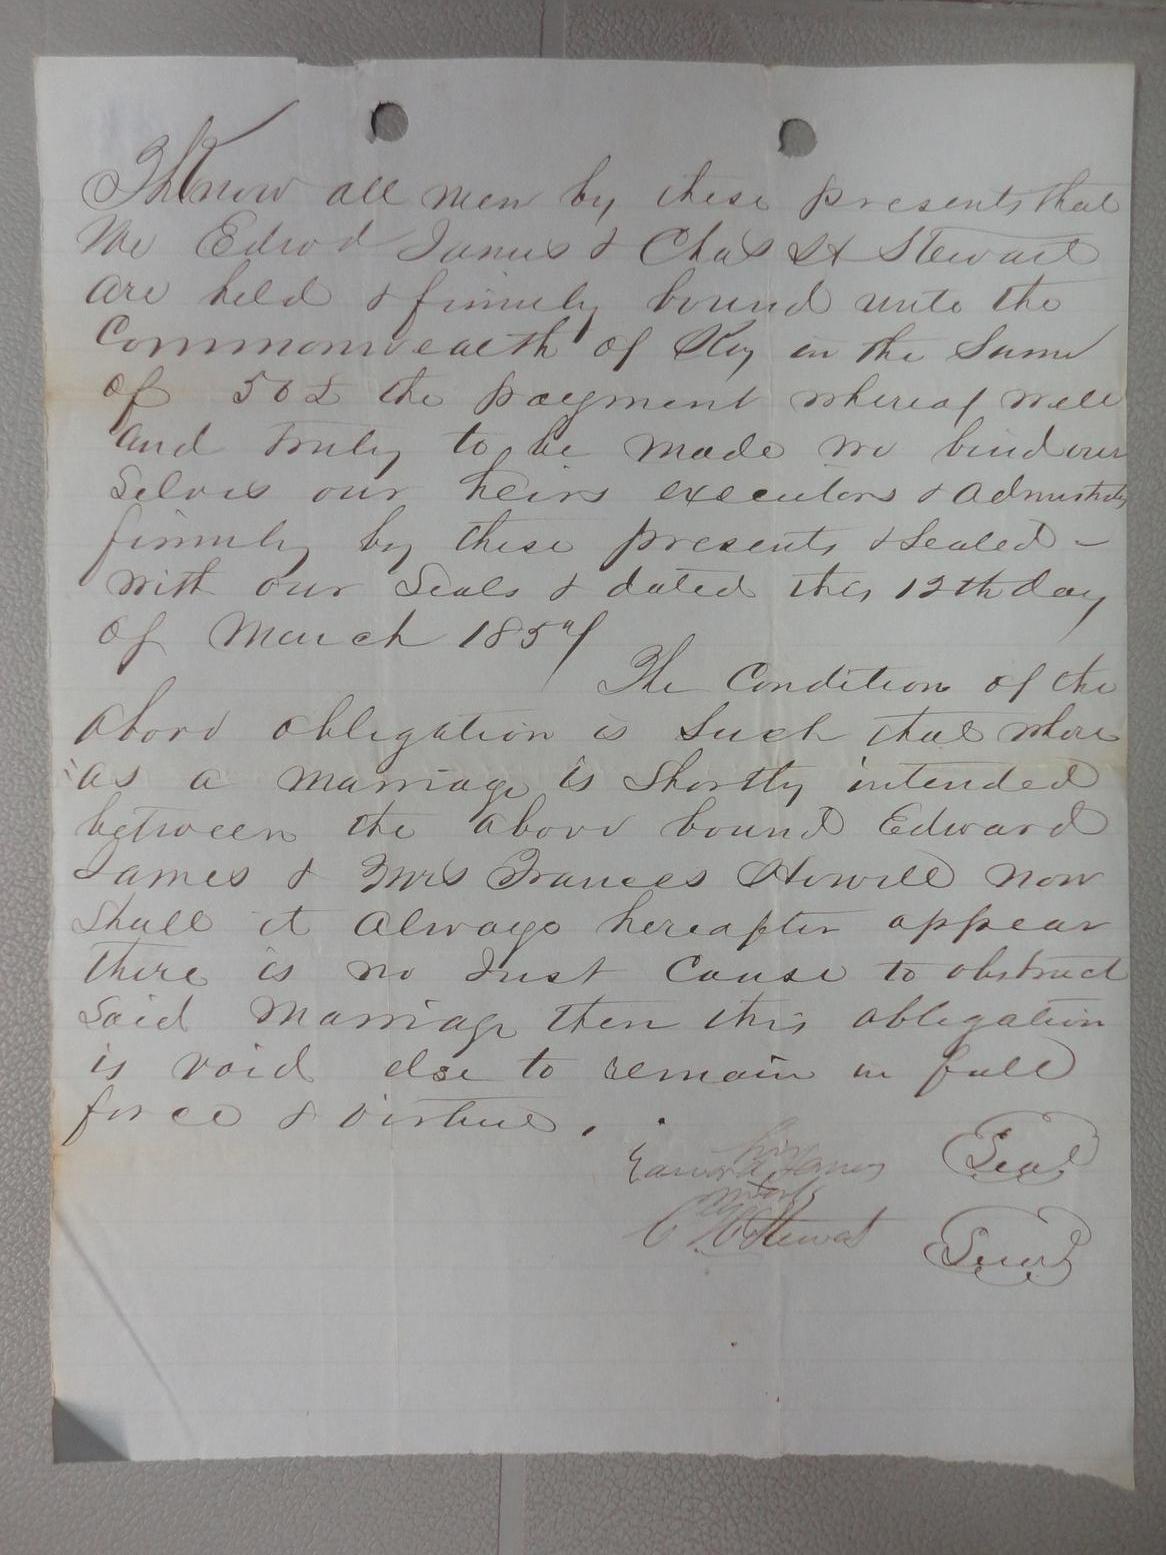 Know all men by these presents that
We Edwd James & Chas H Stewart
are held & firmly bound unto the
Commonwealth of Ky in the Sum
of 50£ the payment whereof well
and truly to be made we bind our
Selves our heirs executors & 
firmly by these presents & Sealed –
with our Seals & dated this 12th day
of March 185
The Condition of the
above obligation is Such that where
as a marriage is Shortly intended
between the above bound Edward
James & Mrs Frances Howell now
Shall it always hereafter appear
there is no Just Cause to obstruct
Said Marriage then this obligation
is void else to remain in full
force & virtue.
his
Edward James Seal
mark
C H Stewart Seal